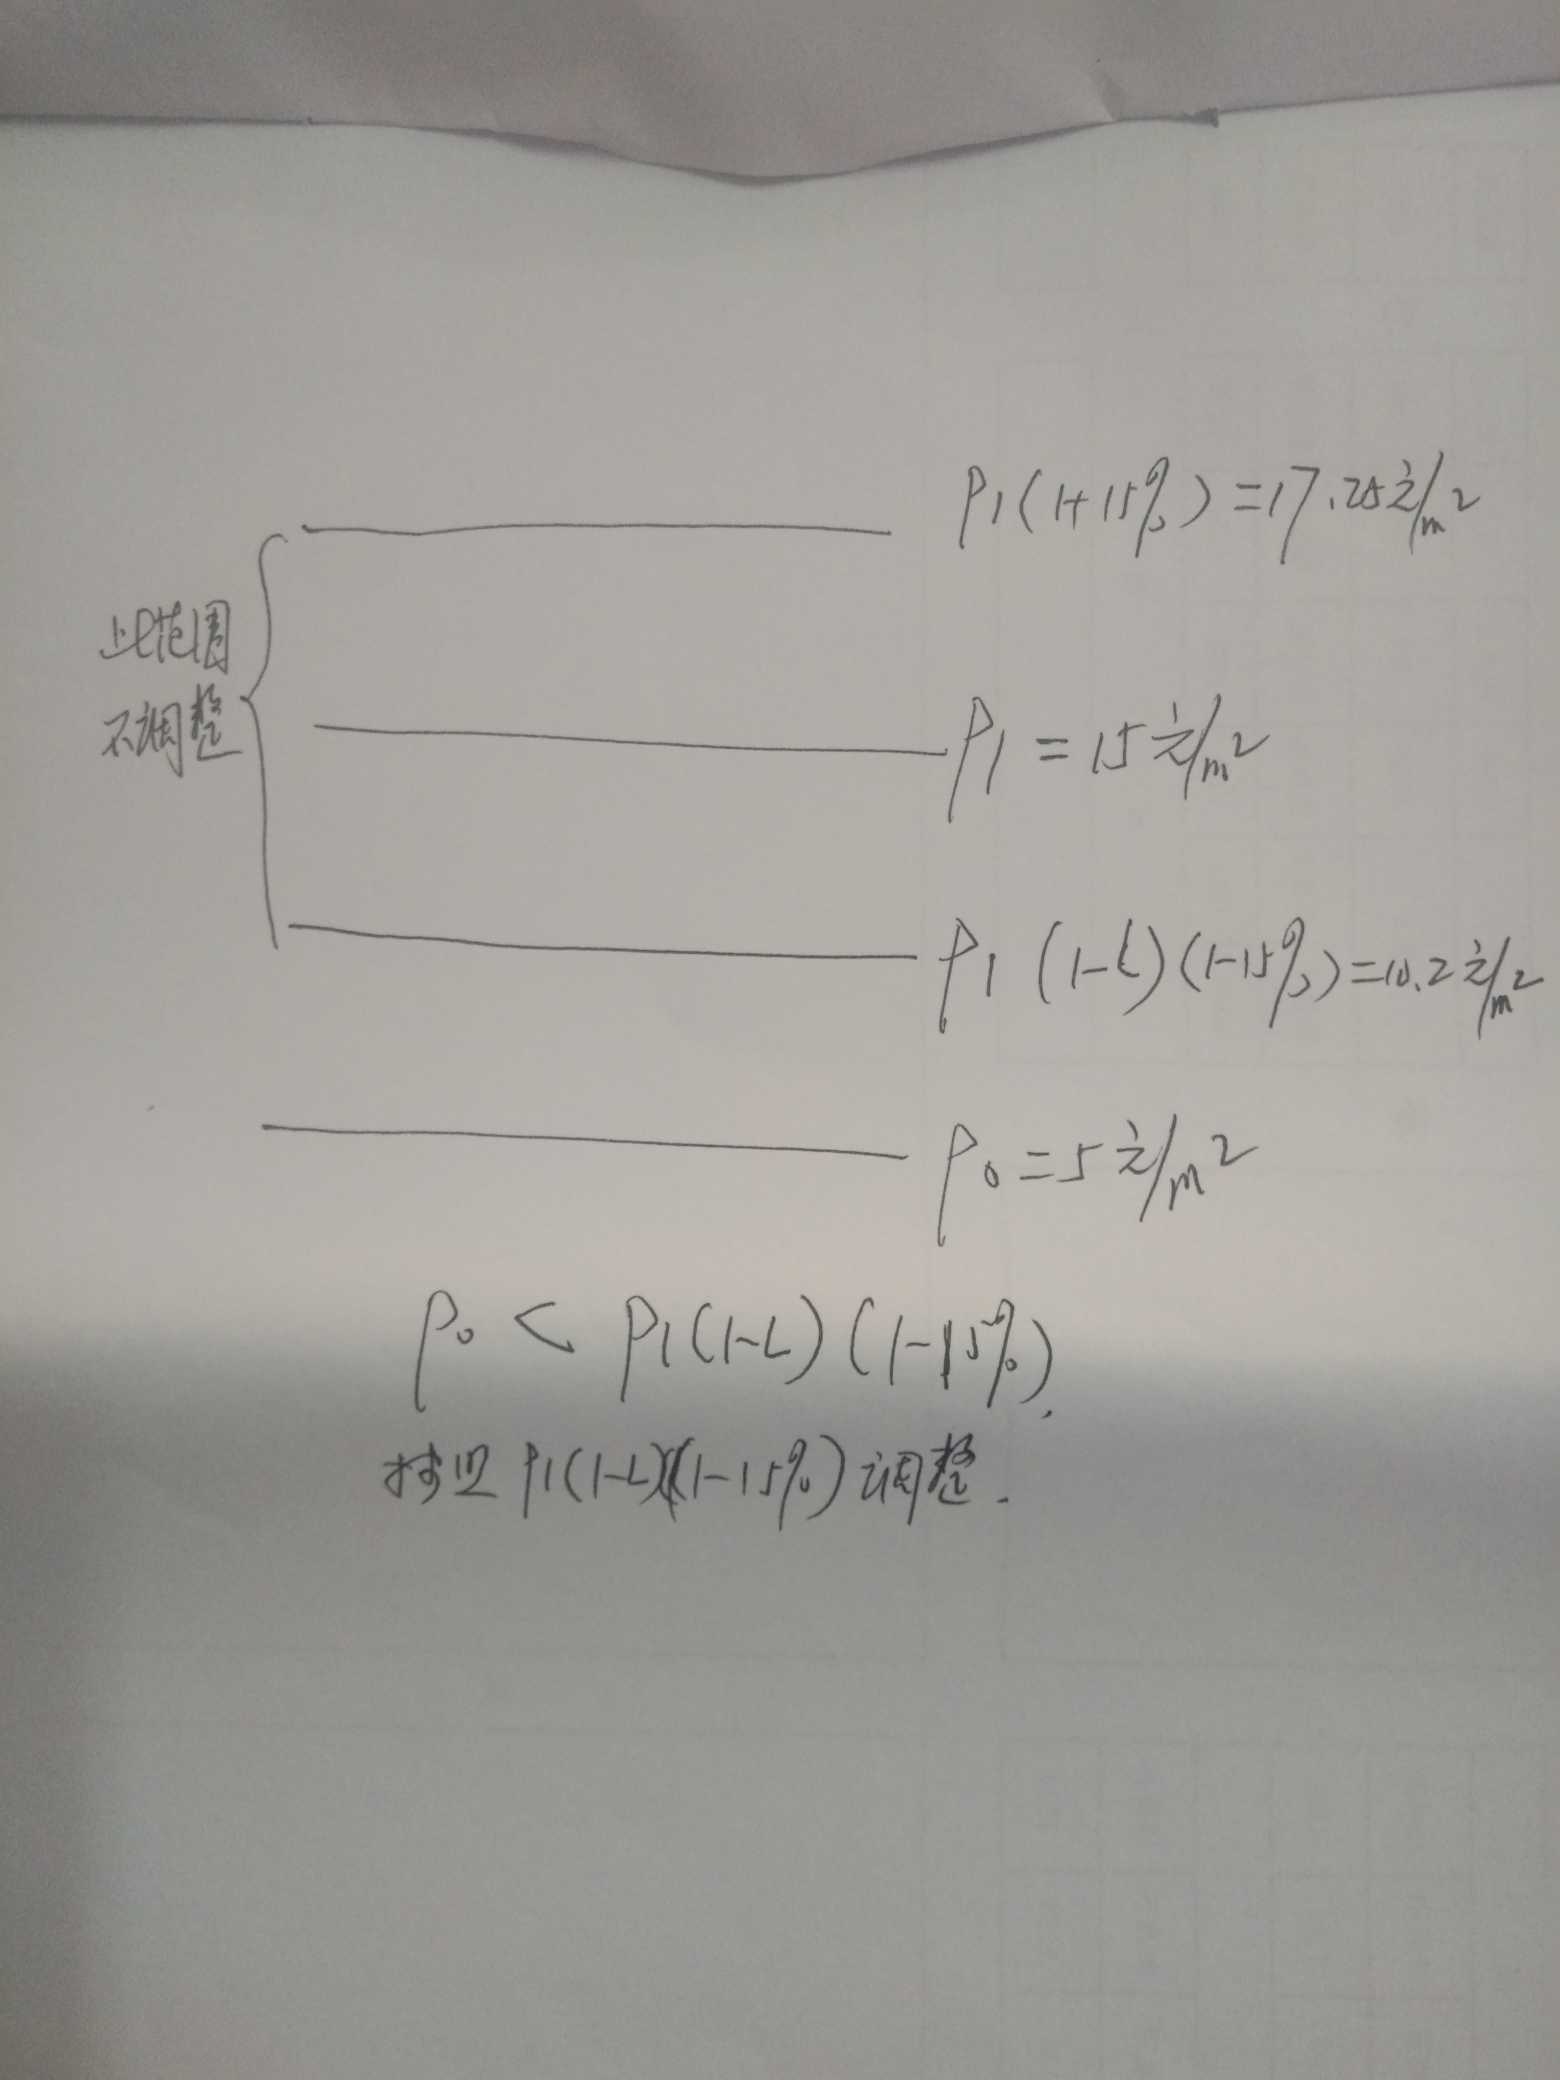 P1(1+15%)=17.25元/m²
此范围
不调整
P1=15元/m²
P1(1-L)(1-15%)=10.2元/m²
P0=5元/m²
P0<P1(1-L)(1-15%).
按照P1(1-L)(1-15%)调整.